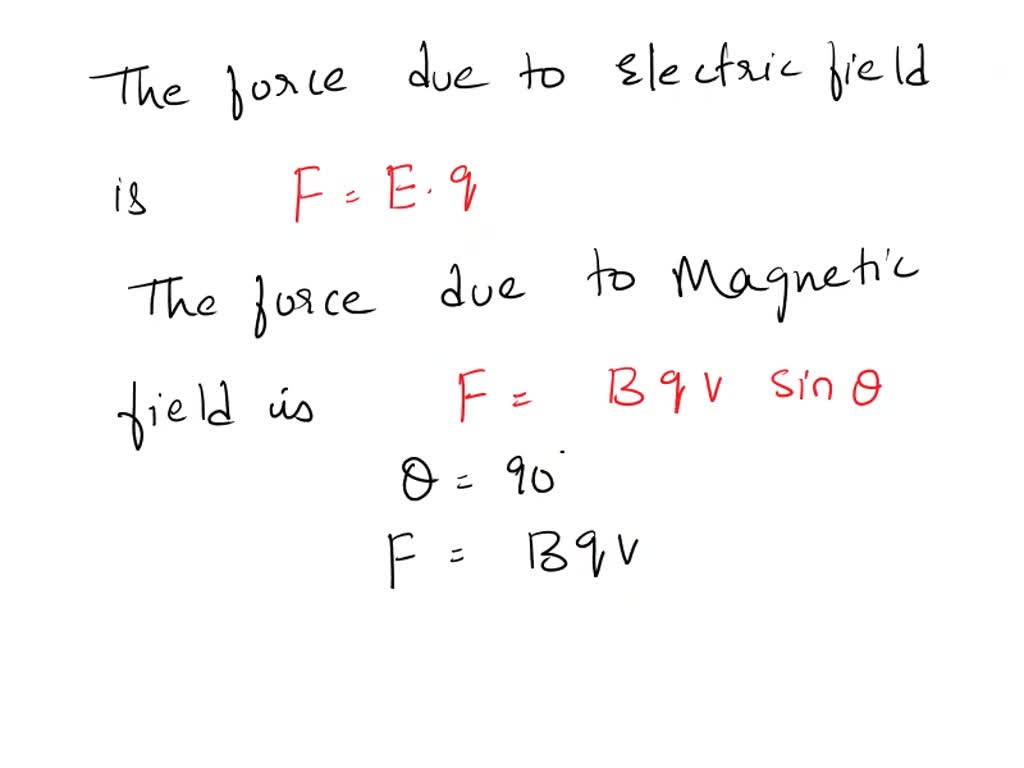 The force due to Electric field
is F = E. q
The force due to Magnetic
field is F = B q v sin θ
θ = 90°
F = B q v